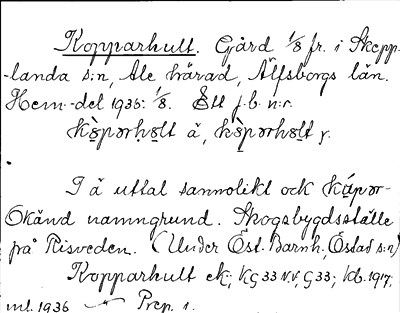 Kopparhult. Gård 1/8 fr. i Skepp-
-landa s:n, Ale härad, Älfsborgs län.
Hem.-del 1935: 1/8. Ett f.b. n:r.
kòpərhult å, kòpərhult y.
I å uttal sannolikt ock kápər-
Okänd namngrund. Skogsbygdsställe
på Risveden. (Under Öst. Barnh, Östad s:n)
Kopparhult ek; KG 33 N.V, G 33; Kb. 1917,
ml. 1936 Prep. i.